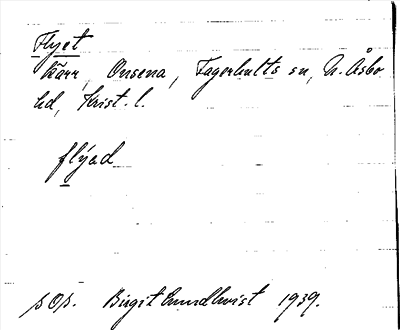 Flyet
kärr, Onsena, Fagerhults sn, N. Åsbo
hd, Krist. l.
flýad
sOp. Birgit Lundkvist 1939.